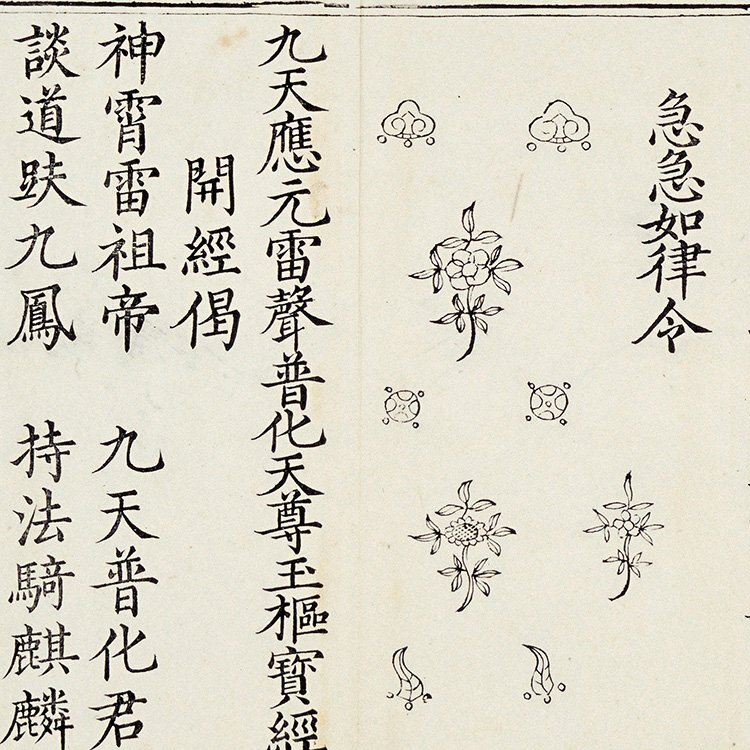 急急如律令
九天應元雷聲普化天尊玉樞寶經
開經偈
神霄雷祖帝　九天普化君
談道趺九鳳　持法騎麒麟